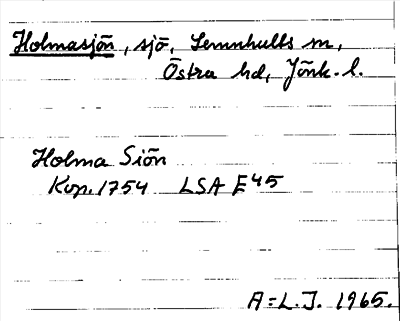 Holmasjön, sjö, Lemnhults sn,
Östra hd, Jönk. l.
Holma Siön
Kop. 1754 LSA E45
A=L.J. 1965.